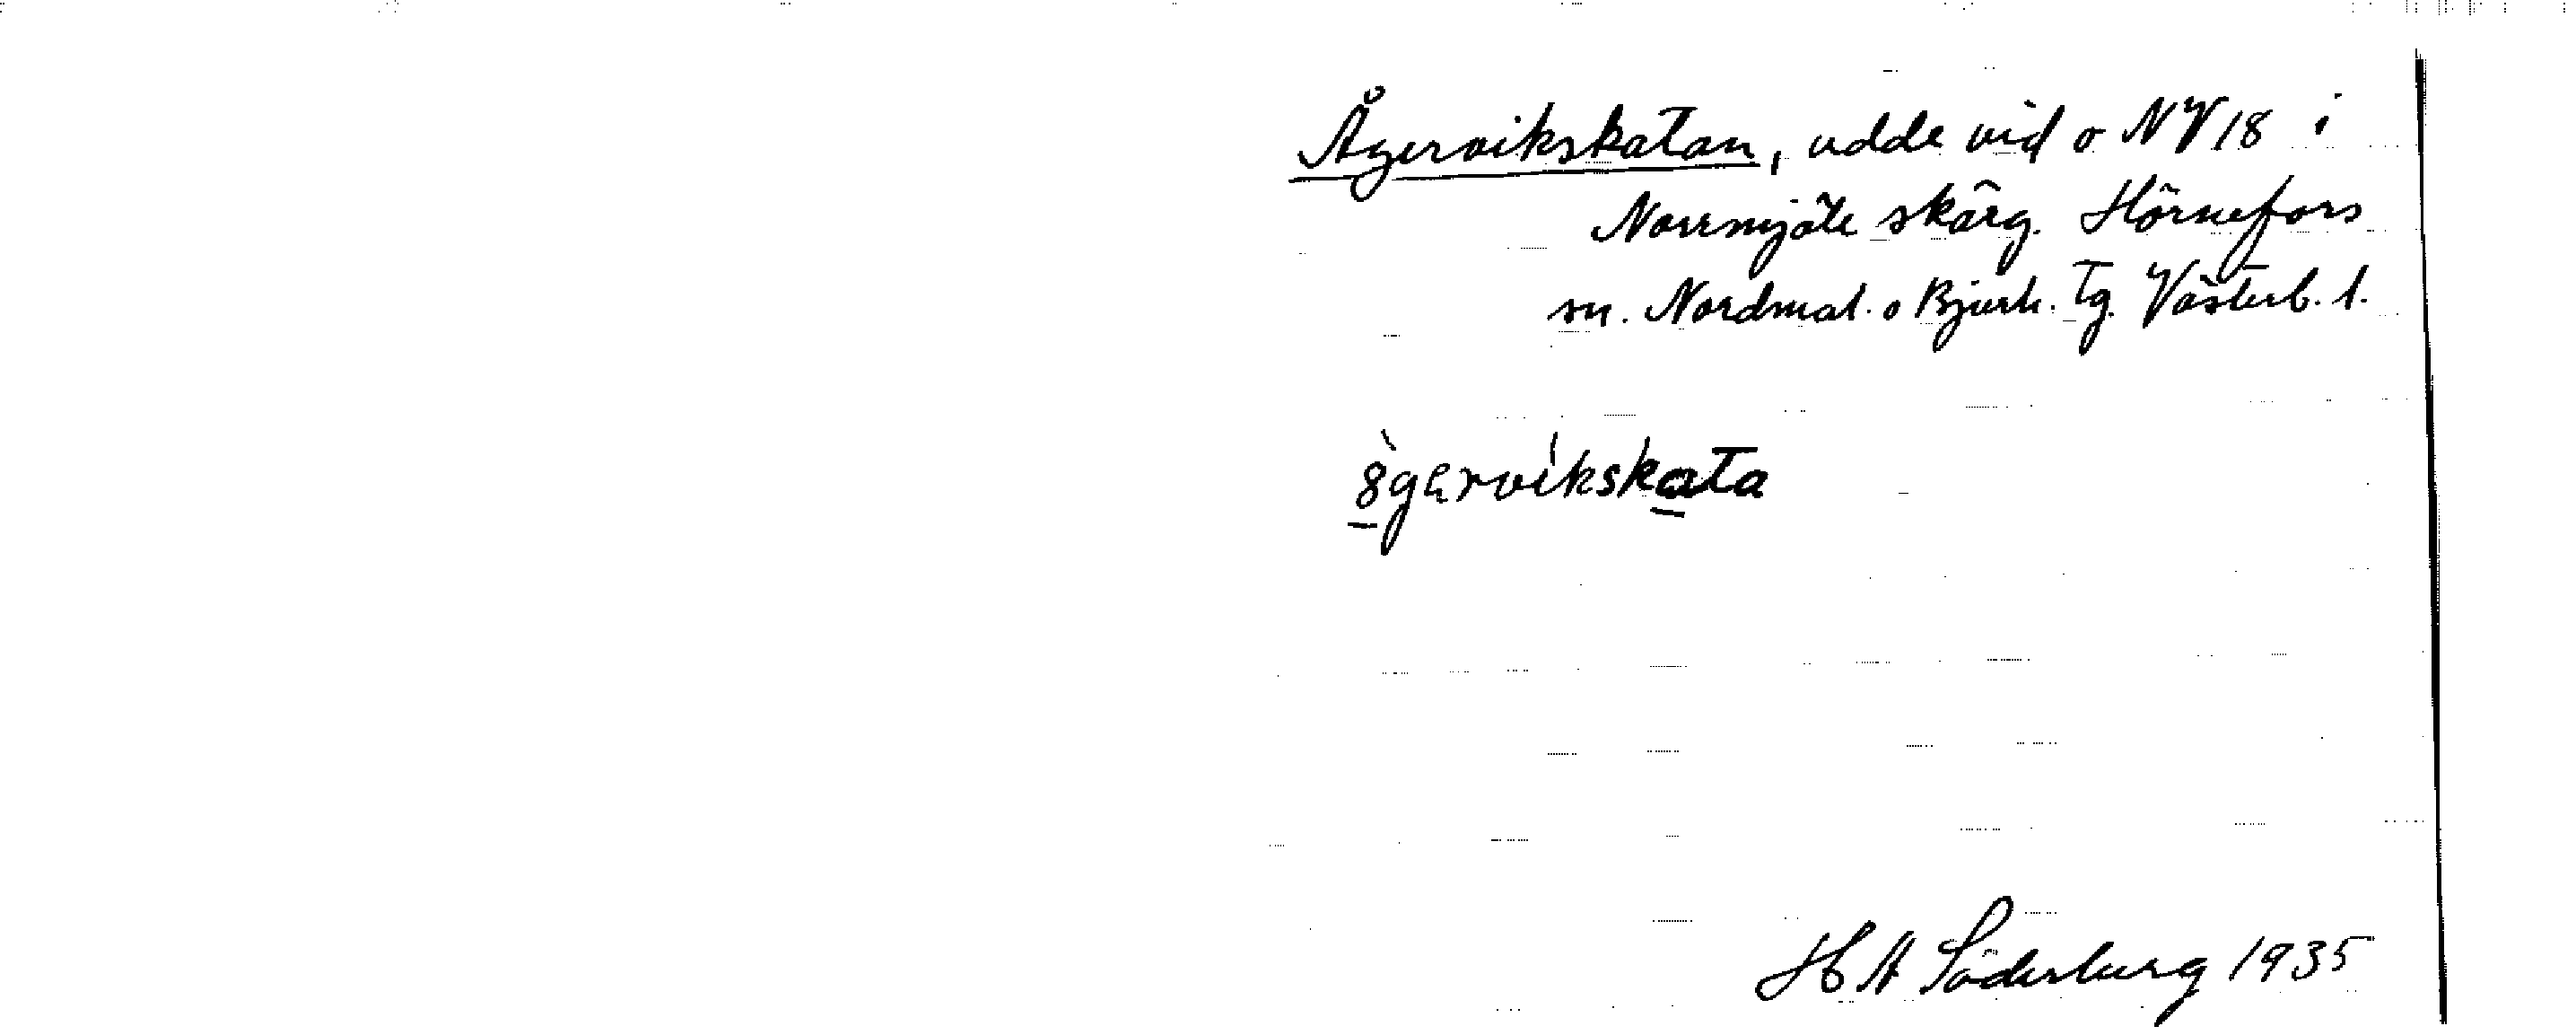 Ågervikskatan, udde vid o NV 18 i
Norrmjöle skärg. Hörnefors
sn. Nordmal. o Bjurh. Tg. Västerb. l.
8̲̀gɐrvi̍kska̲ta
H A Söderberg 1935